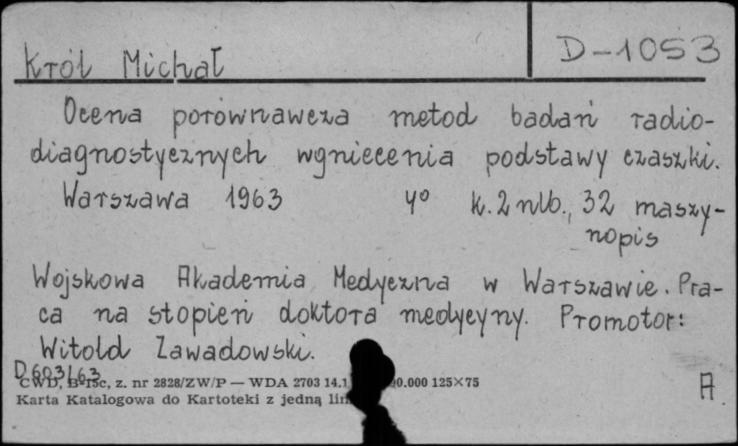 Król Michał D-1053
Ocena porównawcza metod badań radio-
diagnostycznych wgniecenia podstawy czaszki.
Warszawa 1963 4° k. 2 nlb., 32 maszy-
nopis
Wojskowa Akademia Medyczna w Warszawie. Pra-
ca na stopień doktora medycyny. Promotor:
Witold Zawadowski.
D603/63
CWD, B-15c, z. nr 2828/ZW/P — WDA 2703 14.1 00.000 125×75
Karta Katalogowa do Kartoteki z jedną lin
A